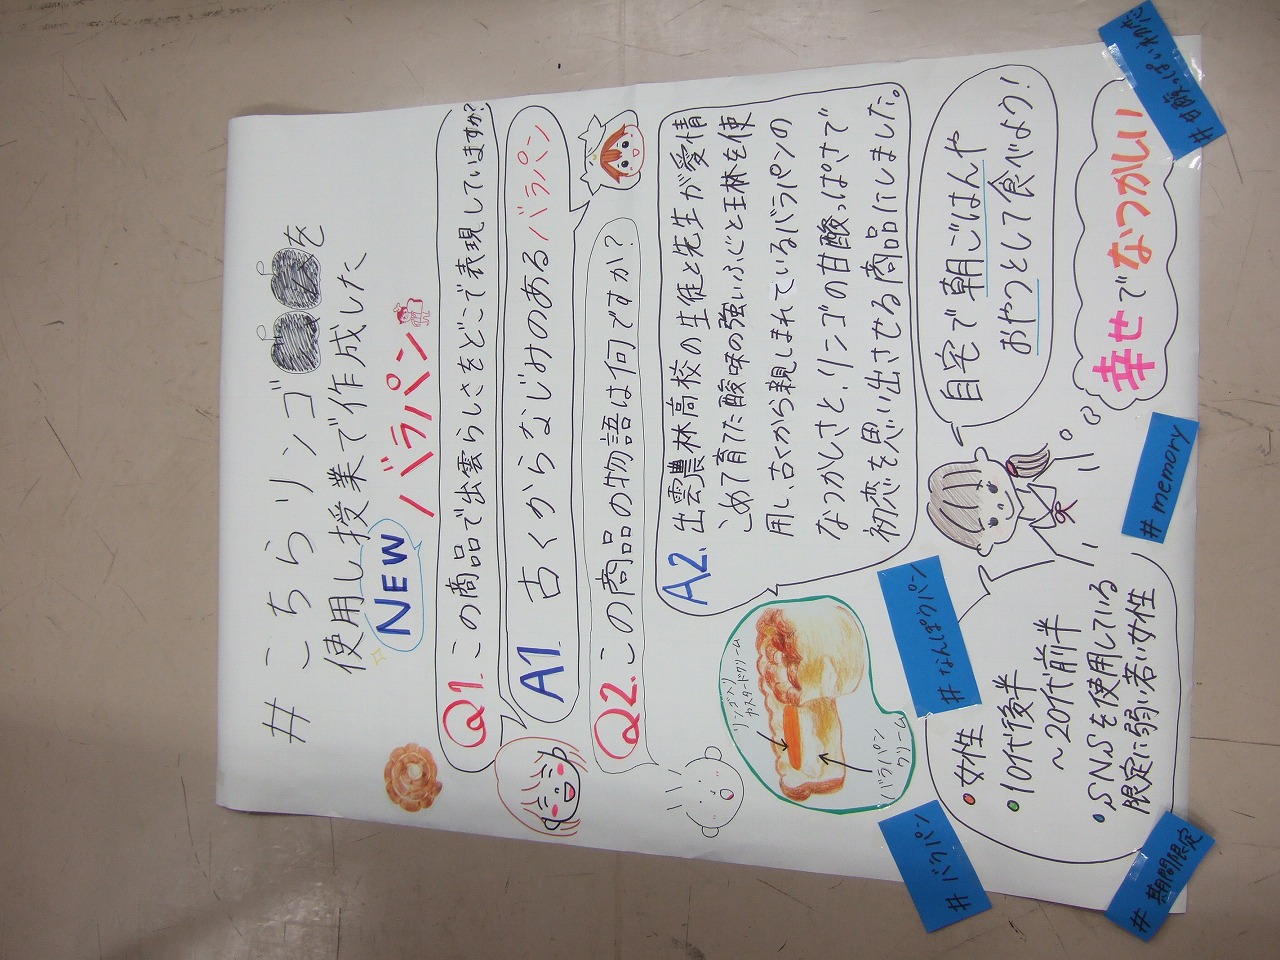 # こちらリンゴを
使用し授業で作成した
NEW バラパン
Q1. この商品で出雲らしさをどこで表現していますか?
A1. 古くからなじみのあるバラパン
Q2. この商品の物語は何ですか?
A2. 出雲農林高校の生徒と先生が愛情
こめて育てた酸味の強いふじと王林を使
用し、古くから親しまれているバラパンの
なつかしさと、リンゴの甘酸っぱさで
初恋を思い出させる商品にしました。
リンゴ入り
カスタードクリーム
バラパン
クリーム
自宅で朝ごはんや
おやつとして食べよう!
幸せでなつかしい
・女性
・10代後半
～20代前半
・SNSを使用している
限定に弱い若い女性
#バラパン
#なんぽうパン
#memory
#期間限定